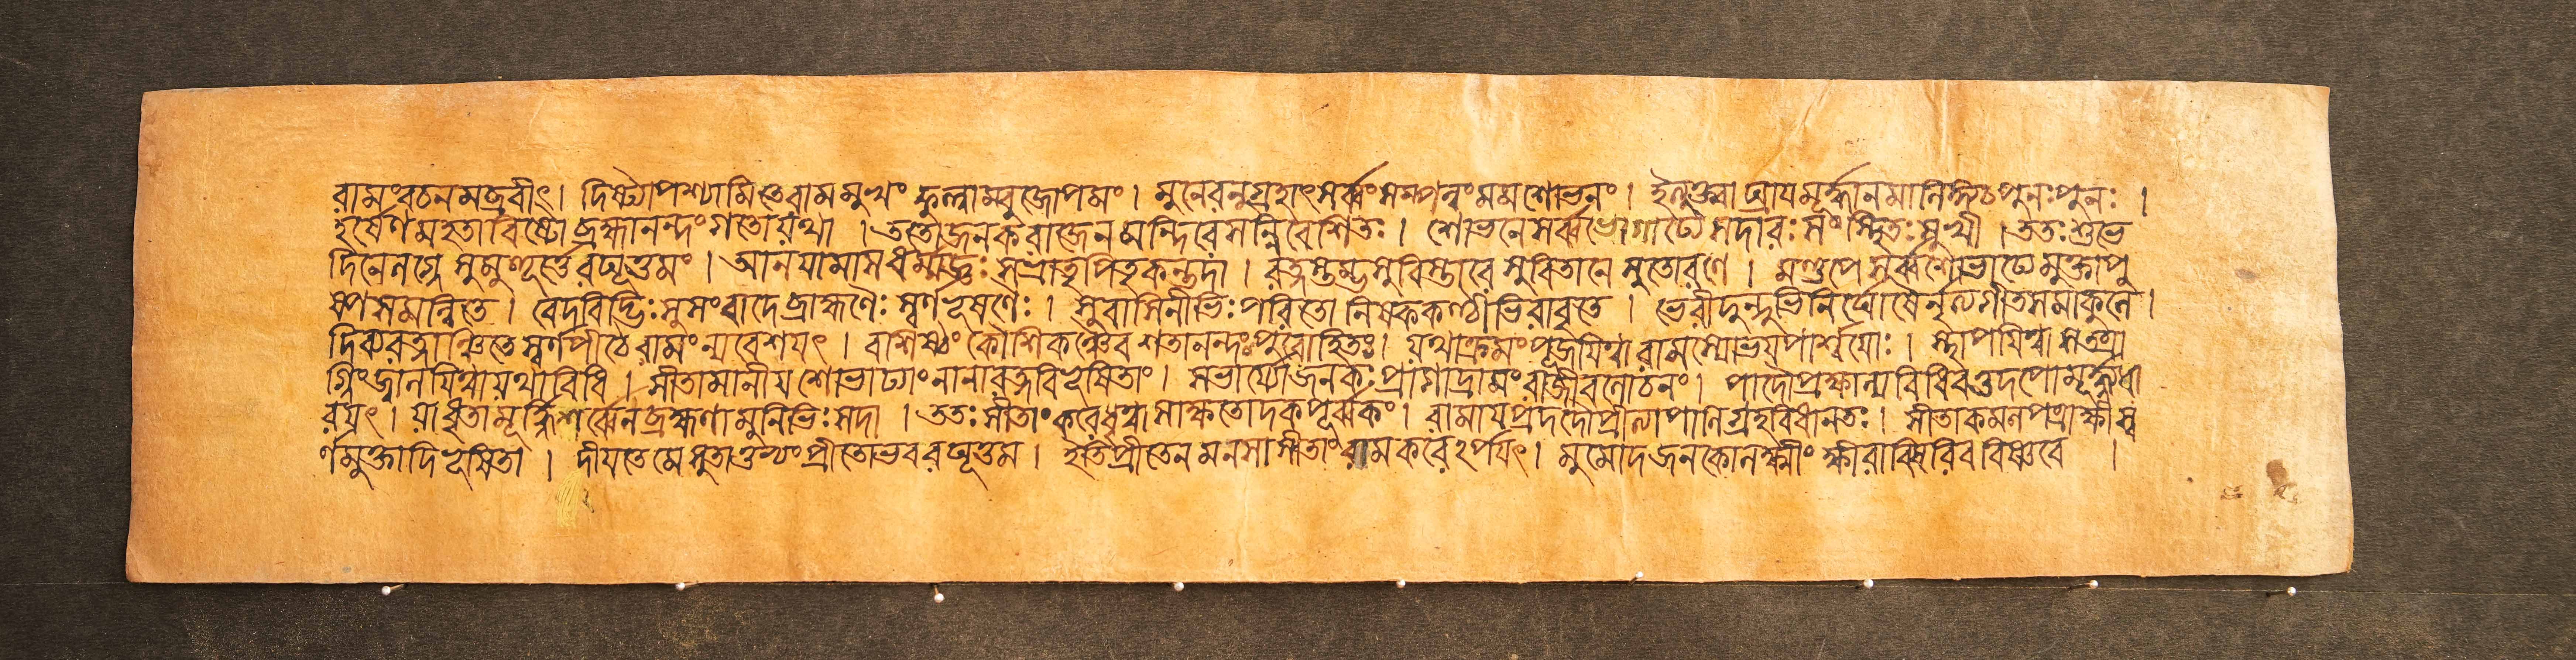 রামংবচনমব্রবীৎ। দিষ্ট্যাপশ্যামিতেরামমুখং ফুল্লাম্বুজোপমং। মুনেরনুগ্রহাৎসর্ব্বংসম্পন্নংমমশোভনং। ইত্যুক্ত্বাঘ্রায়মূর্দ্ধানমালিঙ্গ্যচপুনঃপুনঃ।
হর্ষেণমহতাবিষ্টোব্রহ্মানন্দংগতোযথা । ততোজনকরাজেনমন্দিরেসন্নিবেশিতঃ। শোভনেসর্ব্বভোগাঢ্যেসদারঃসংস্তুতঃসুখী। ততঃশুভে
দিনেলগ্নে সুমুহূর্ত্তেরঘূত্তমং। আনয়ামাসধর্ম্মজ্ঞঃ সভ্রাতৃপিতৃকন্তদা। রত্নস্তম্ভসুবিস্তারে সুবিতানে সুতোরণে। মণ্ডপে সর্ব্বশোভাঢ্যেমুক্তাপু
ষ্পসমন্বিতে। বেদবিদ্ভিঃসুসংবাদেব্রাহ্মণৈঃস্বর্ণভূষণৈঃ। সুবাসিনীভিঃপরিতোনিষ্ককণ্ঠীভিরাবৃতে। ভেরীদুন্দুভিনির্ঘোষৈর্নৃত্যগীতসমাকুলে।
দিব্যরত্নাঞ্চিতেস্বর্ণপীঠেরামংন্যবেশয়ৎ। বাশিষ্ঠংকৌশিকঞ্চৈবশতানন্দঃপুরোহিতঃ। যথাক্রমংপূজয়িত্বারামস্যোভয়পার্শ্বয়োঃ। স্থাপয়িত্বাসতত্রা
গ্নিংজ্বালয়িত্বাযথাবিধি। সীতামানীয়শোভাঢ্যাংনানারত্নবিভূষিতাং। সভার্য্যোজনকঃপ্রাগাদ্রামংরাজীবলোচনং। পাদৌপ্রক্ষাল্যবিধিবত্তদপোমূর্দ্ধ্ন্যধা
রয়ৎ। যাধৃতামূর্দ্ধ্নিশর্ব্বেনব্রহ্মণামুনিভিঃসদা। ততঃসীতাংকরেধৃত্বাসাক্ষতোদকপূর্ব্বকং। রামায়প্রদদৌপ্রীত্যাপাণিগ্রহবিধানতঃ। সীতাকমলপত্রাক্ষীস্ব
র্ণমুক্তাদিভূষিতা। দীয়তেমেসুতাতুভ্যংপ্রীতোভবরঘূত্তম। ইতিপ্রীতেনমনসাসীতাংরামকরেঽর্পয়ৎ। মুমোদজনকোলক্ষ্মীংক্ষীরাব্ধিরিববিষ্ণবে।